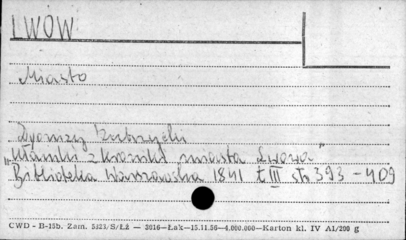 LWÓW
Miasto
Dyonizy Zubrzycki
"Ułamki z kronik miasta Lwowa"
Biblioteka Warszawska 1841 t III str 393 - 409
CWD - B-15b. Zam. 5323/S/ŁŻ — 3016—Łak—15.11.56—4.000.000—Karton kl. IV A1/200 g